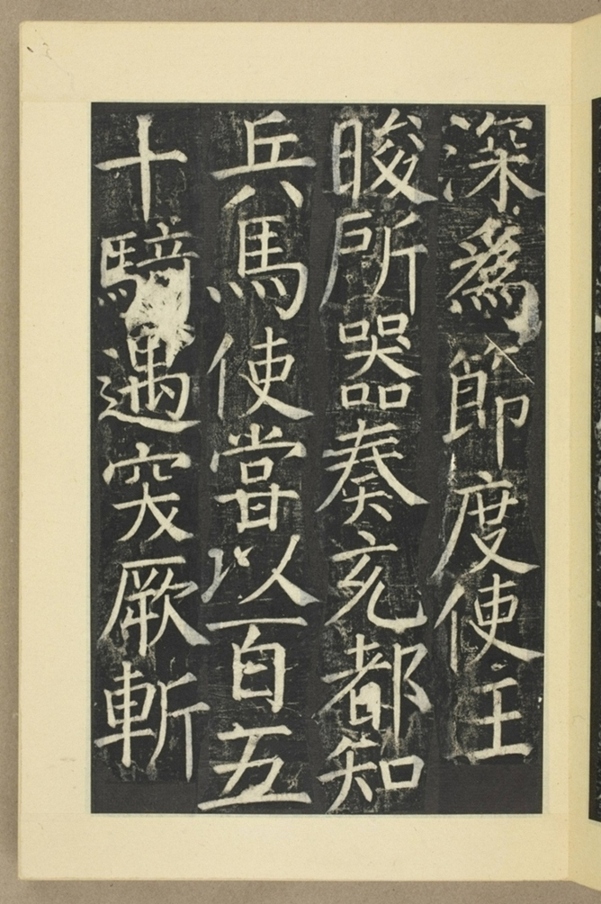 深爲節度使王
晙所器奏充都知
兵馬使甞以百五
十騎遇突厥斬